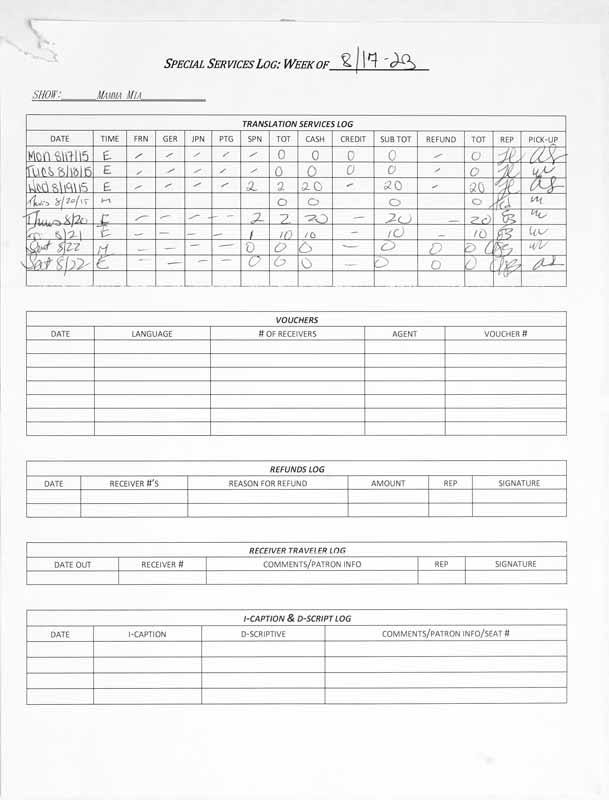 SPECIAL SERVICES LOG: WEEK OF 8/17-23
SHOW: MAMMA MIA
TRANSLATION SERVICES LOG
DATE TIME FRN GER JPN PTG SPN TOT CASH CREDIT SUB TOT REFUND TOT REP PICK-UP
Mon 8/17/15 E - - - - 0 0 - 0 0
Tues 8/18/15 E - - - - 0 0 - 0 0
Wed 8/19/15 E - - - - 2 2 20 - 20 20
Thurs 8/20/15 M 0 0 0 0
Thurs 8/20 E - - - - 2 2 20 - 20 - 20 EB
8/21 E - - - - 1 10 10 - 10 - 10 EB
Sat 8/22 M - - - - 0 0 0 - 0 0 0
Sat 8/22 E - - - - 0 0 0 - 0 0 0
VOUCHERS
DATE LANGUAGE # OF RECEIVERS AGENT VOUCHER #
REFUNDS LOG
DATE RECEIVER #'S REASON FOR REFUND AMOUNT REP SIGNATURE
RECEIVER TRAVELER LOG
DATE OUT RECEIVER # COMMENTS/PATRON INFO REP SIGNATURE
I-CAPTION & D-SCRIPT LOG
DATE I-CAPTION D-SCRIPTIVE COMMENTS/PATRON INFO/SEAT #